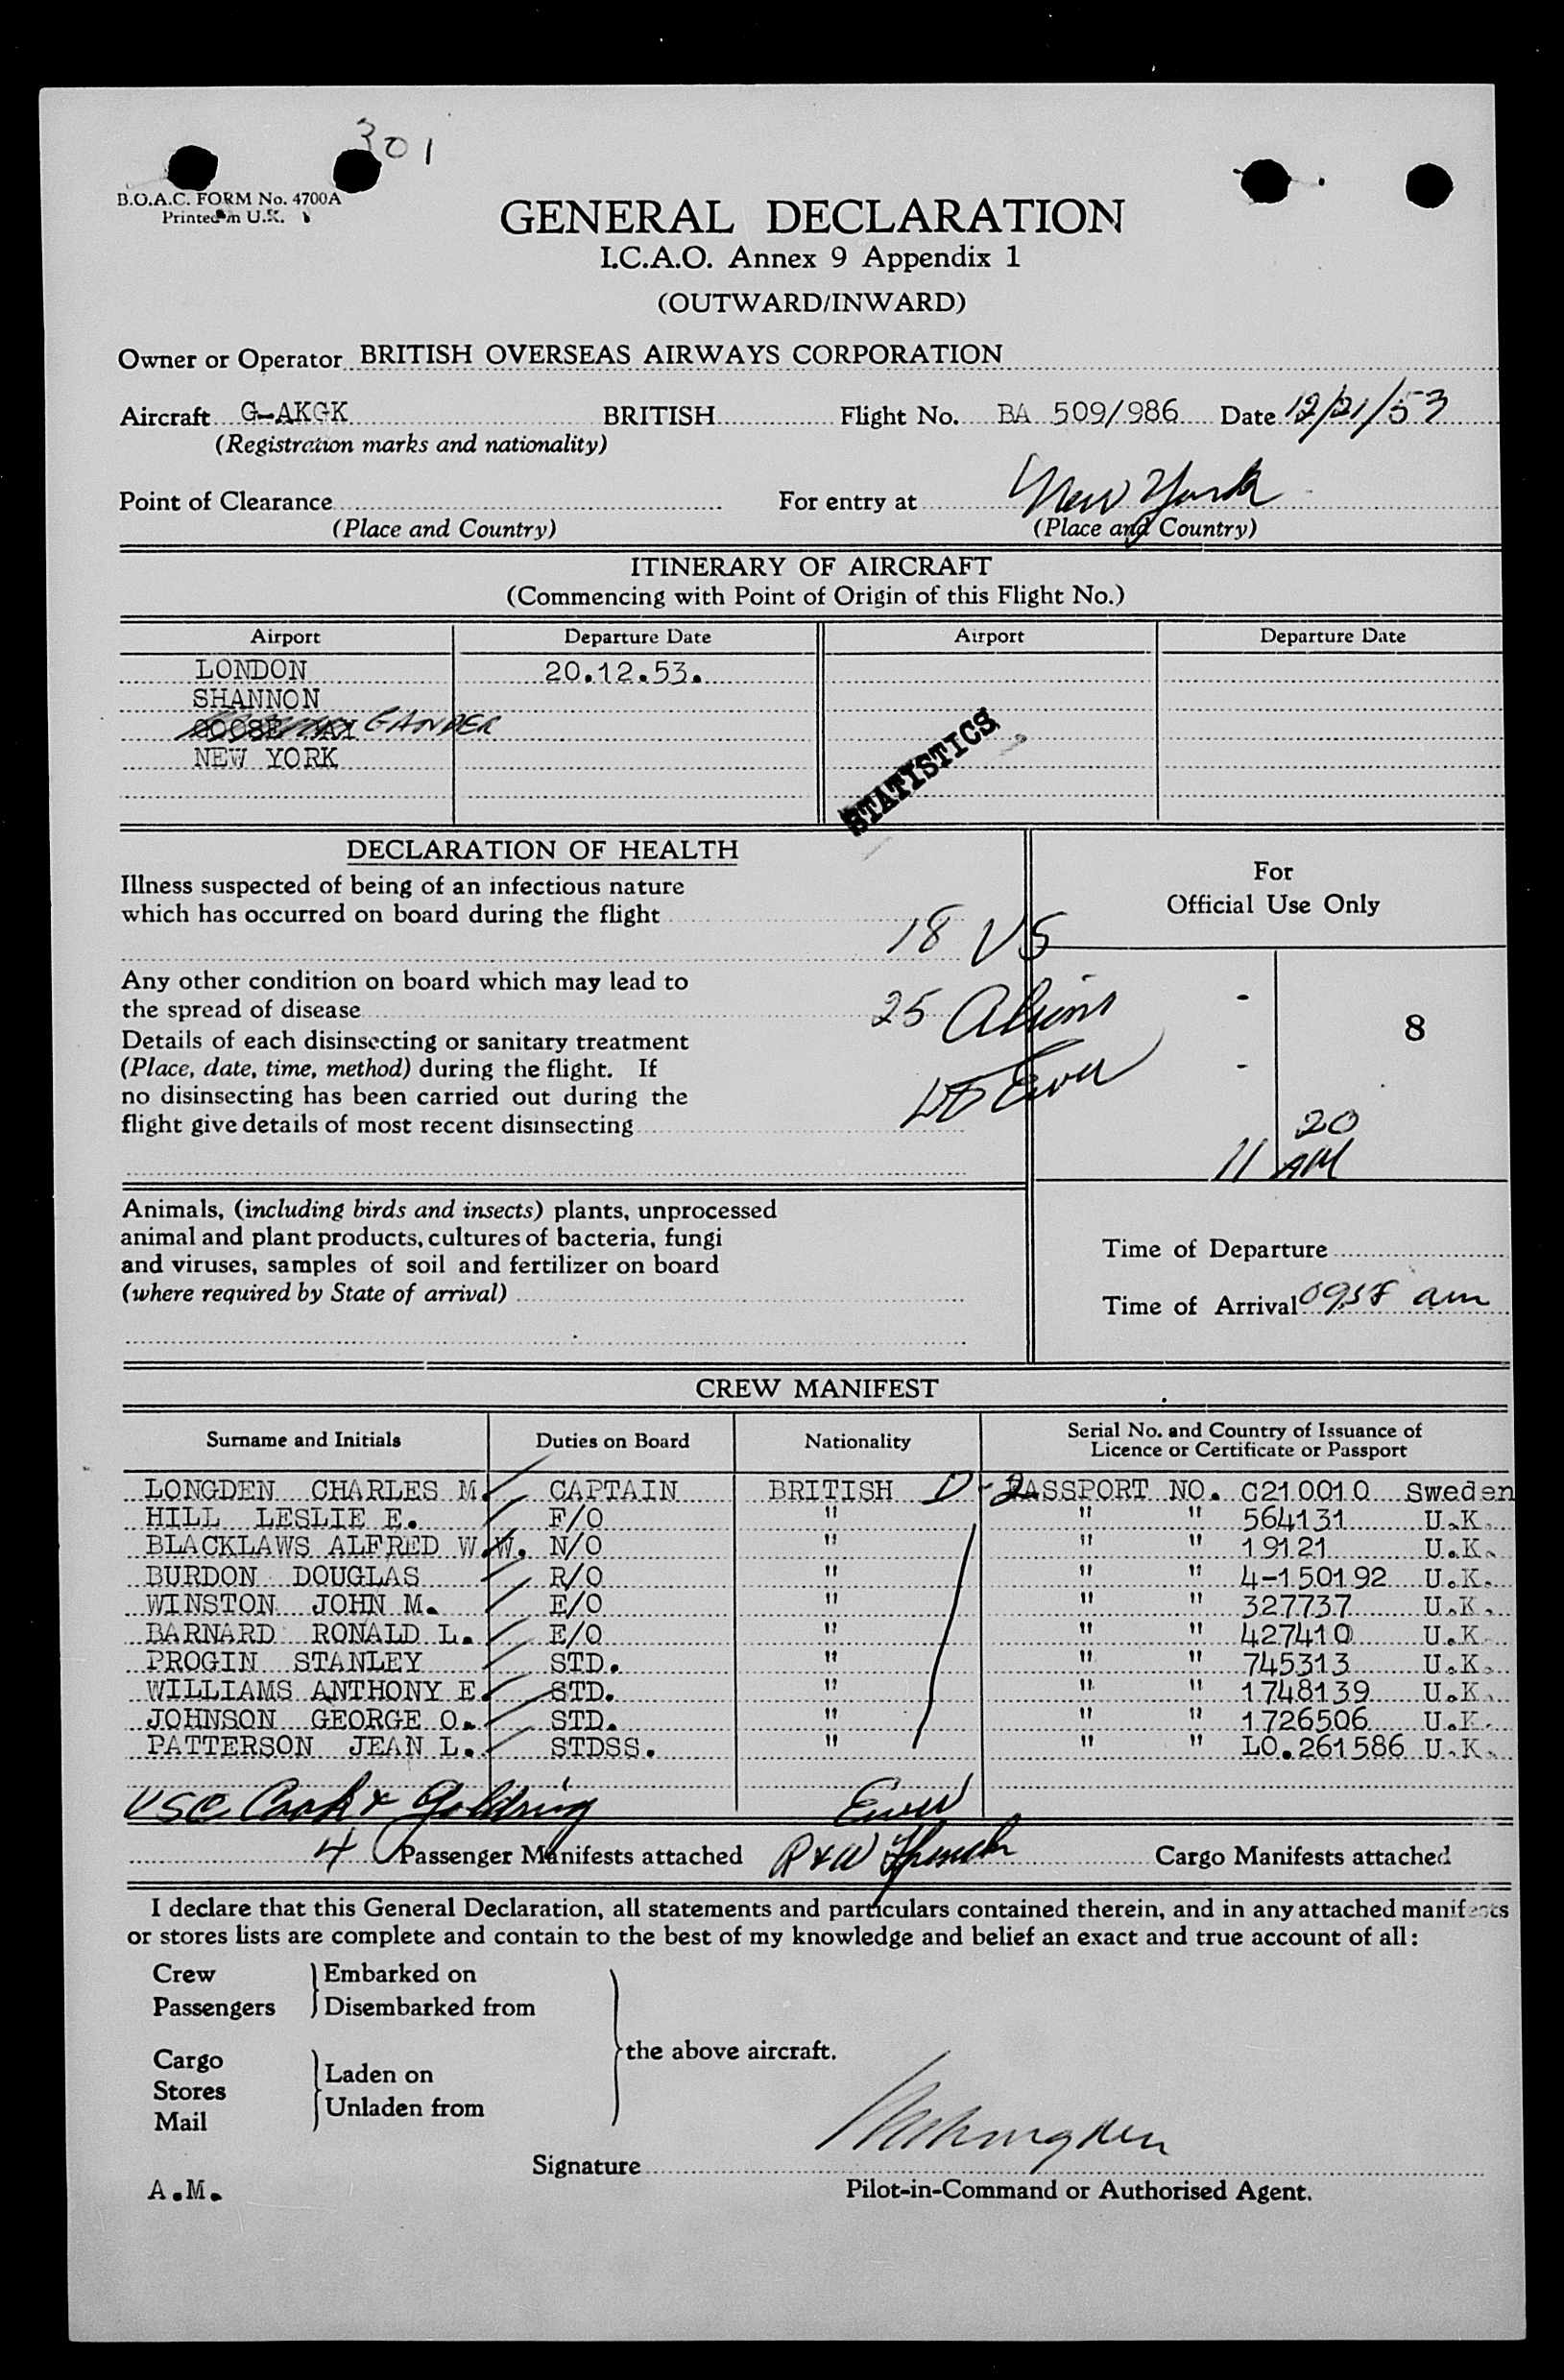 301
B.O.A.C. FORM No. 4700A
Printed in U.K.
GENERAL DECLARATION
I.C.A.O. Annex 9 Appendix 1
(OUTWARD/INWARD)
Owner or Operator BRITISH OVERSEAS AIRWAYS CORPORATION
Aircraft G-AKGK BRITISH Flight No. BA 509/986 Date 12/21/53
(Registration marks and nationality)
Point of Clearance For entry at New York
(Place and Country) (Place and Country)
ITINERARY OF AIRCRAFT
(Commencing with Point of Origin of this Flight No.)
Airport Departure Date Airport Departure Date
LONDON 20.12.53.
SHANNON
GOOSE BAY GANDER
NEW YORK
STATISTICS
DECLARATION OF HEALTH
Illness suspected of being of an infectious nature
which has occurred on board during the flight
18 US
Any other condition on board which may lead to
the spread of disease
25 Aliens
Details of each disinsecting or sanitary treatment
(Place, date, time, method) during the flight. If
no disinsecting has been carried out during the
flight give details of most recent disinsecting
For
Official Use Only
-
8
-
20
11 AM
Animals, (including birds and insects) plants, unprocessed
animal and plant products, cultures of bacteria, fungi
and viruses, samples of soil and fertilizer on board
(where required by State of arrival)
Time of Departure
Time of Arrival 0958 am
CREW MANIFEST
Surname and Initials Duties on Board Nationality Serial No. and Country of Issuance of
Licence or Certificate or Passport
LONGDEN CHARLES M. CAPTAIN BRITISH D-2 PASSPORT NO. C210010 Sweden
HILL LESLIE E. F/O " " " 564131 U.K.
BLACKLAWS ALFRED W.W. N/O " " " 19121 U.K.
BURDON DOUGLAS R/O " " " 4-150192 U.K.
WINSTON JOHN M. E/O " " " 327737 U.K.
BARNARD RONALD L. E/O " " " 427410 U.K.
PROGIN STANLEY STD. " " " 745313 U.K.
WILLIAMS ANTHONY E. STD. " " " 1748139 U.K.
JOHNSON GEORGE O. STD. " " " 1726506 U.K.
PATTERSON JEAN L. STDSS. " " " LO.261586 U.K.
USC Cook & Goldring
4 Passenger Manifests attached R&W Cargo Manifests attached
I declare that this General Declaration, all statements and particulars contained therein, and in any attached manifests
or stores lists are complete and contain to the best of my knowledge and belief an exact and true account of all:
Crew Embarked on
Passengers Disembarked from
the above aircraft.
Cargo
Stores Laden on
Mail Unladen from
Signature
A.M. Pilot-in-Command or Authorised Agent.